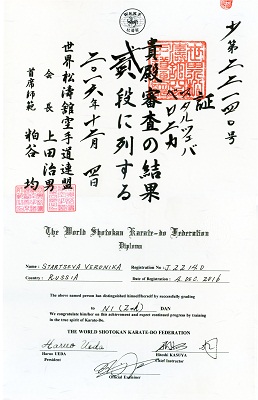 少第二二一四〇号
証
スタルツェバ
ベロニカ
貴殿審査の結果
貮段に列する
二〇一六年十二月四日
世界松涛館空手道連盟
会長 上田治男
首席師範 粕谷均
The World Shotokan Karate-do Federation
Diploma
Name: STARTSEVA VERONIKA Registration No: J 22140
Country: RUSSIA Date of Registration: 4. DEC. 2016
The above named person has distinguished himself/herself by successfully grading
to NI (2nd) DAN
We congratulate him/her on this achievement and expect continued progress by training
in the true spirit of Karate-Do.
THE WORLD SHOTOKAN KARATE-DO FEDERATION
Haruo Ueda
Haruo UEDA Hitoshi KASUYA
President Chief Instructor
Official Endorser